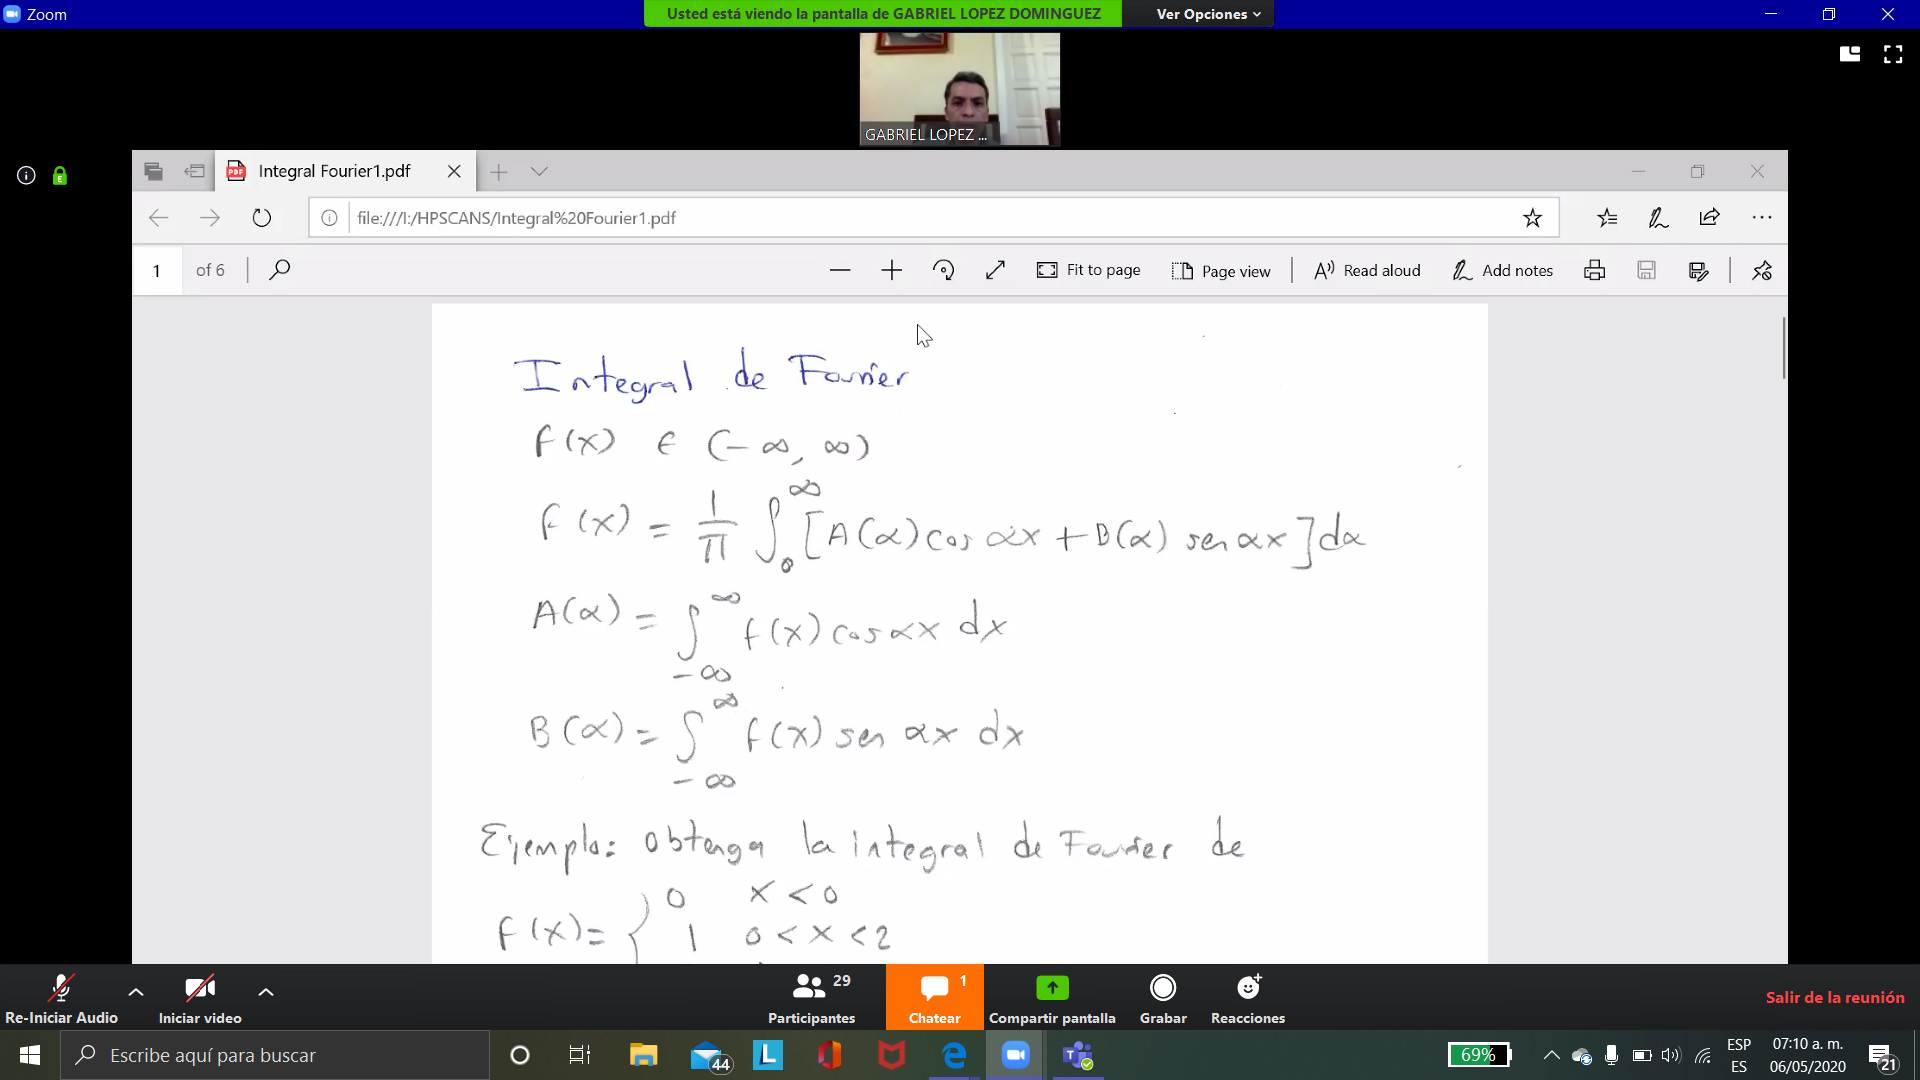 Zoom
Usted está viendo la pantalla de GABRIEL LOPEZ DOMINGUEZ
Ver Opciones
GABRIEL LOPEZ ...
Integral Fourier1.pdf
file:///I:/HPSCANS/Integral%20Fourier1.pdf
1 of 6
Fit to page
Page view
Read aloud
Add notes
Integral de Fourier
f(x) ∈ (-∞, ∞)
f(x) = 1/π ∫₀^∞ [A(α) cos αx + B(α) sen αx] dα
A(α) = ∫_{-∞}^∞ f(x) cos αx dx
B(α) = ∫_{-∞}^∞ f(x) sen αx dx
Ejemplo: obtenga la integral de Fourier de
f(x) = { 0 x < 0
1 0 < x < 2
Re-Iniciar Audio
Iniciar video
Participantes 29
Chatear 1
Compartir pantalla
Grabar
Reacciones
Salir de la reunión
Escribe aquí para buscar
44
69%
ESP
ES
07:10 a. m.
06/05/2020
21